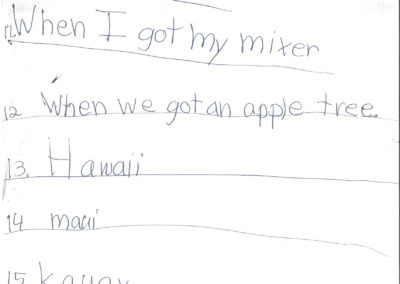 11. When I got my mixer
12 When we got an apple tree.
13. Hawaii
14 maui
15